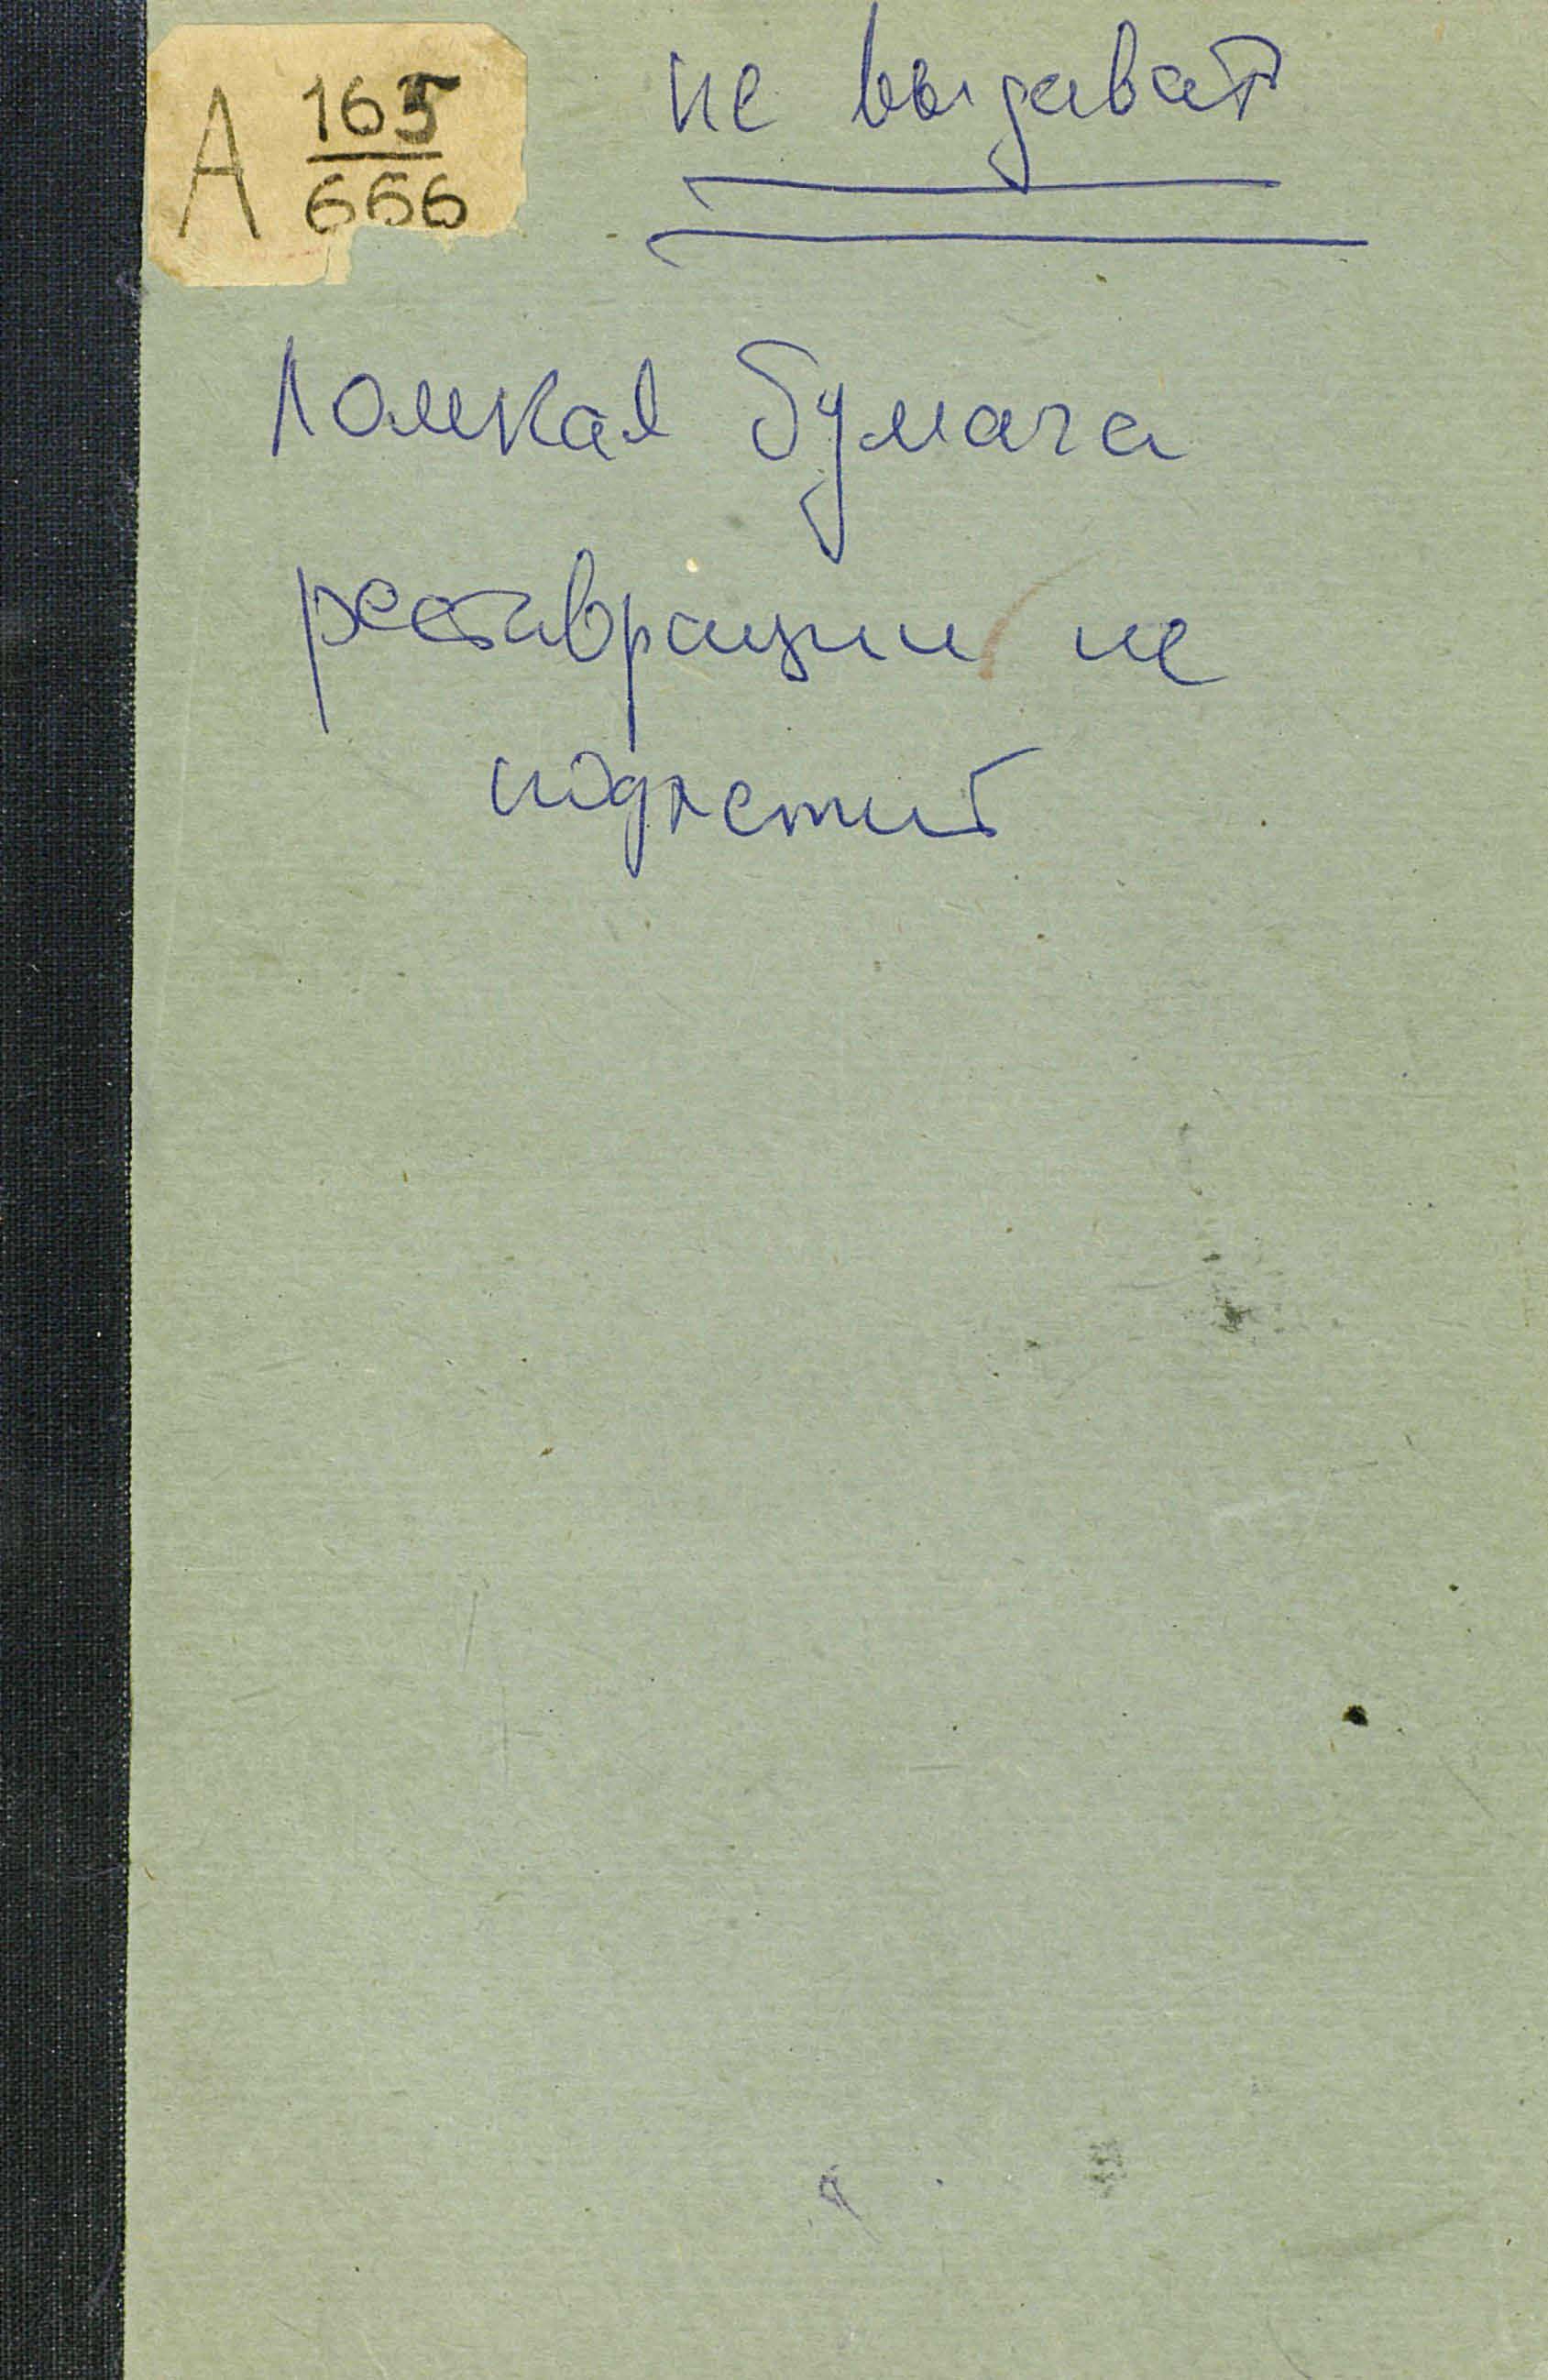 А 165
666
не выдават
ломкая бумага
реставрации не
подлежит